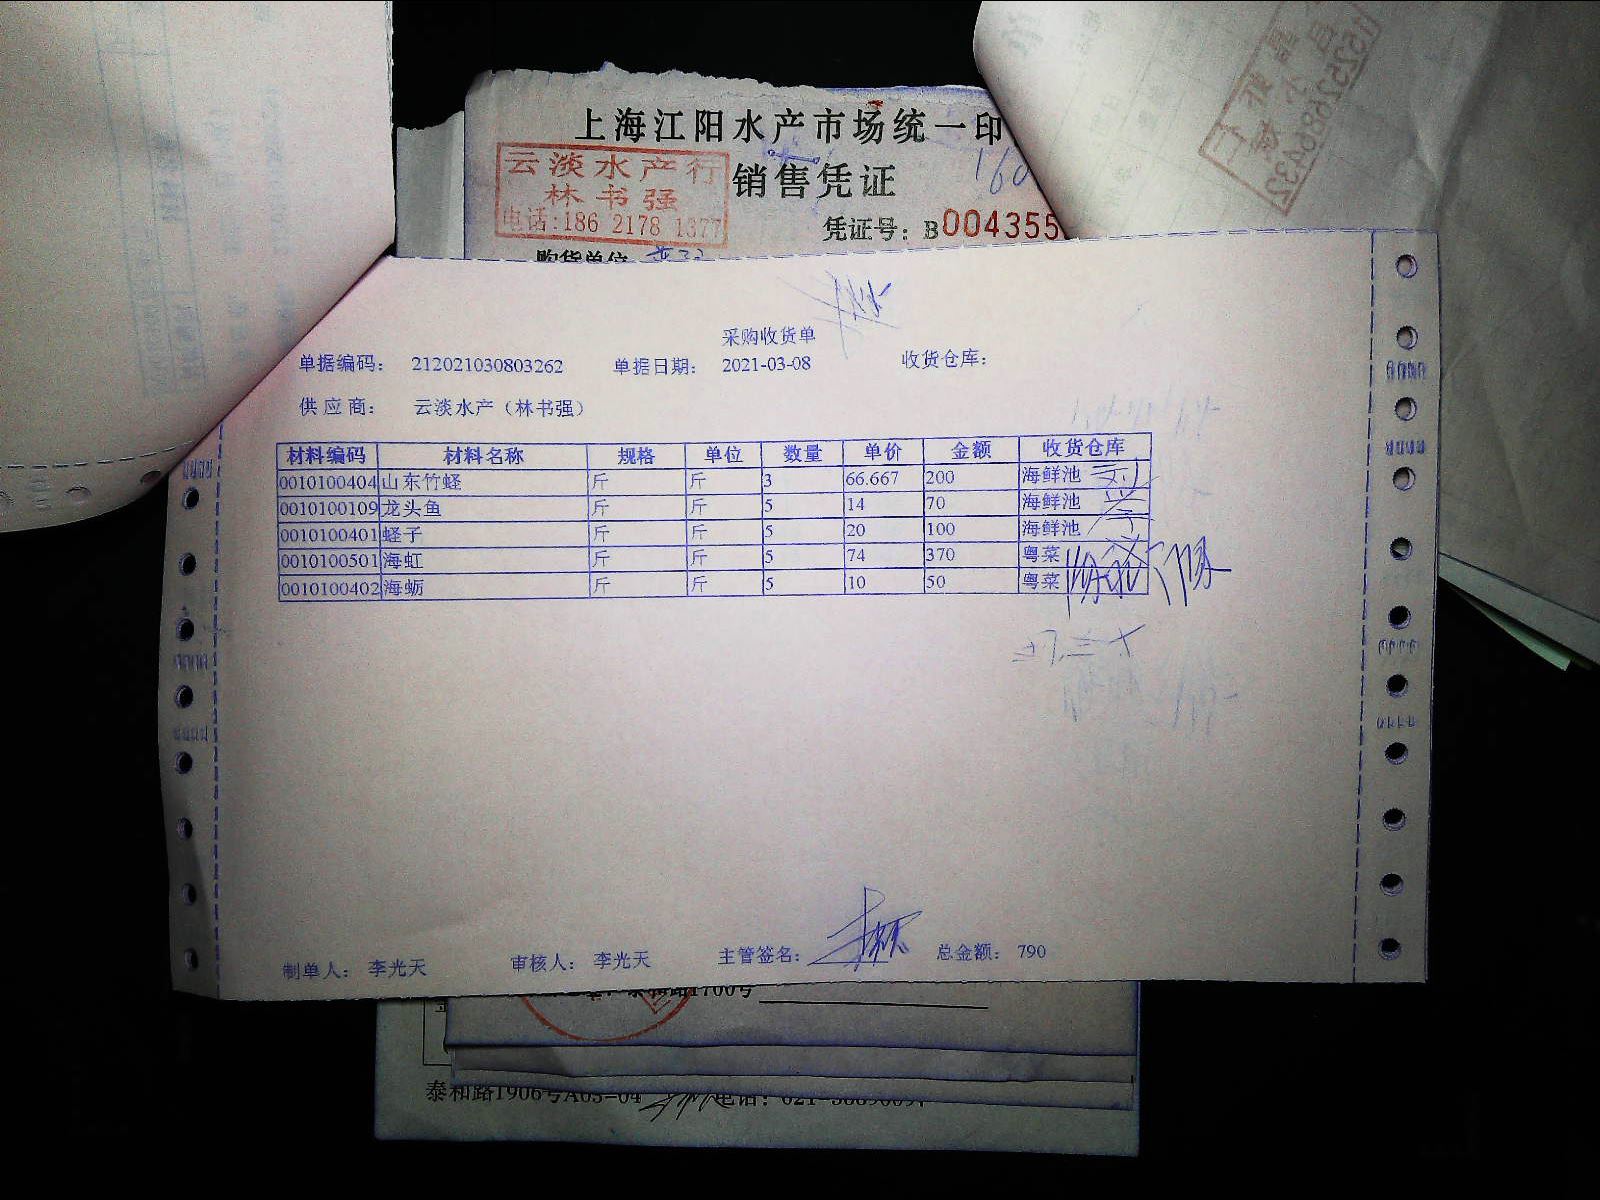 上海江阳水产市场统一印
云淡水产行
林书强
电话:186 2178 1377
销售凭证
160
凭证号：B004355
购货单位
采购收货单
单据编码： 212021030803262 单据日期： 2021-03-08 收货仓库：
供应商： 云淡水产（林书强）
材料编码 材料名称 规格 单位 数量 单价 金额 收货仓库
0010100404 山东竹蛏 斤 斤 3 66.667 200 海鲜池
0010100109 龙头鱼 斤 斤 5 14 70 海鲜池
0010100401 蛏子 斤 斤 5 20 100 海鲜池
0010100501 海虹 斤 斤 5 74 370 粤菜
0010100402 海蛎 斤 斤 5 10 50 粤菜
制单人： 李光天 审核人： 李光天 主管签名： 总金额： 790
泰和路1700号
泰和路1906号A03-04 电话：021-
15252686432